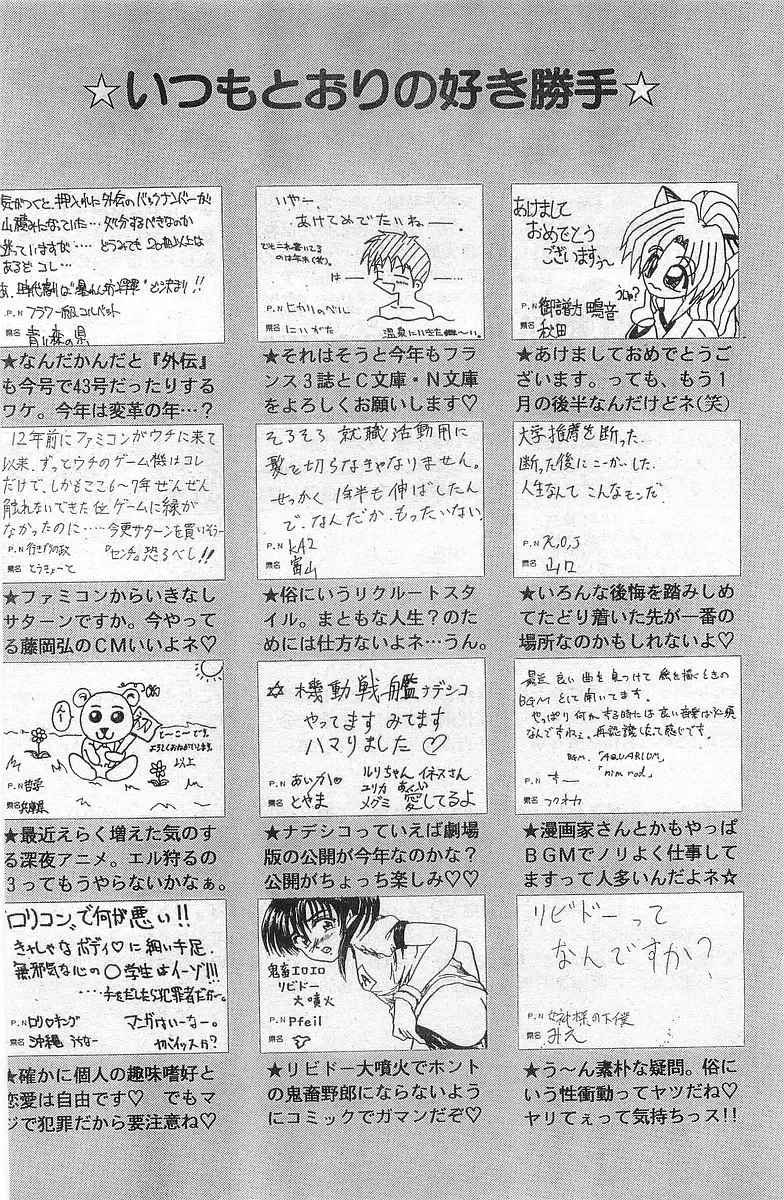 ☆いつもとおりの好き勝手☆
あけまして
おめでとう
ございますぅ〜
うにゅ?
P.N 御譜方 鴨音
県名 秋田
★あけましておめでとうご
ざいます。っても、もう1
月の後半なんだけどネ(笑)
いやー、
あけてめでたいねー。
でもこれ書いてる
のは年末(笑)。
は——
P.N ヒカルのベル
県名 にいがた
温泉にいきた
★それはそうと今年もフラ
ンス3誌とC文庫・N文庫
をよろしくお願いします♡
気がつくと、押入れに外伝のバックナンバーが
山積みになっていた…処分するべきなのか
迷っていますが…‥ どうみても20冊以上は
あるぞ コレ…
時代劇は"暴れん坊将軍"と決まり!!
P.N フラワー商温コルベット
県名 青い森の県
★なんだかんだと『外伝』
も今号で43号だったりする
ワケ。今年は変革の年…?
大学推薦を断った.
断った後にこーかいした.
人生なんて こんなモンだ.
P.N K,O,J
県名 山口
★いろんな後悔を踏みしめ
てたどり着いた先が一番の
場所なのかもしれないよ♡
そろそろ 就職活動用に
髪を切らなきゃなりません。
せっかく 1年半も伸ばしたん
で、なんだか、もったいない.
P.N KAZ
県名 富山
★俗にいうリクルートスタ
イル。まともな人生?のた
めには仕方ないよネ…うん。
12年前にファミコンがウチに来て
以来、ずっとウチのゲーム機はコレ
だけで、しかもここ6〜7年ぜんぜん
触れないできた位ゲームに縁が
なかったのに……今更サターンを買いそう…
『センチ』恐るべし!!
P.N 行きずりの政
県名 とうきょーと
★ファミコンからいきなし
サターンですか。今やって
る藤岡弘のCMいいよネ♡
最近 良い曲を見つけて 絵を描くときの
BGMとして聞いてます.
やっぱり何かする時には良い音楽は必須
なんですねぇ。再認識したって感じです。
BGM. 「AQUARIUM」
「nimrod」
県名 フクオカ
★漫画家さんとかもやっぱ
BGMでノリよく仕事して
ますって人多いんだよネ☆
☆ 機動戦艦ナデシコ
やってます みてます
ハマりました ♡
P.N あいか
県名 とやま
ルリちゃん イネスさん
ユリカ
メグミ 愛してるよ
★ナデシコっていえば劇場
版の公開が今年なのかな?
公開がちょっち楽しみ♡♡
初
とーこーです。
よろしくおねがいします。
以上
P.N 哲学
県名 兵庫県
★最近えらく増えた気のす
る深夜アニメ。エル狩るの
3ってもうやらないかなぁ。
リビドーって
なんですか?
P.N 女神様の下僕
県名 みえ
★う〜ん素朴な疑問。俗に
いう性衝動ってヤツだね♡
ヤリてぇって気持ちっス!!
鬼畜エロエロ
リビドー
大噴火
P.N Pfeil
県名
★リビドー大噴火でホント
の鬼畜野郎にならないよう
にコミックでガマンだぞ♡